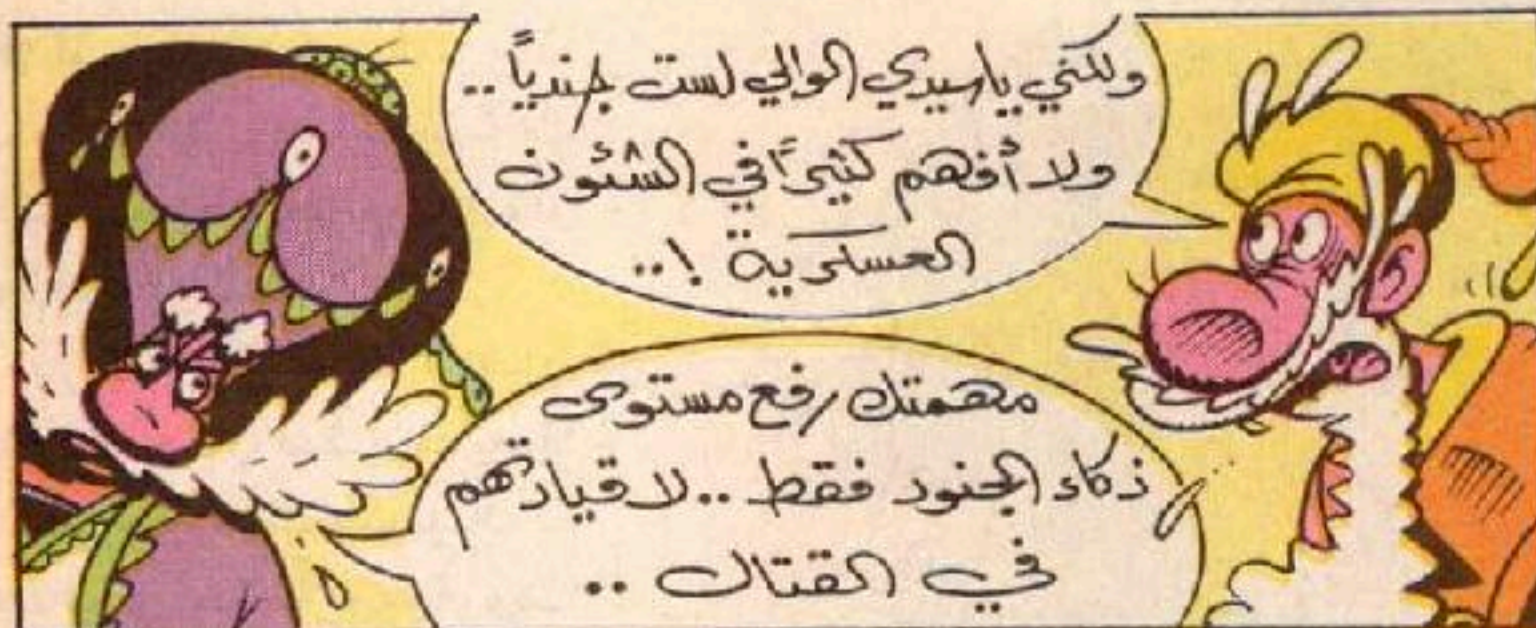 ولكني ياسيدي الوالي لست جندياً..
ولا أفهم كثيراً في الشئون
العسكرية !..
مهمتك رفع مستوى
ذكاء الجنود فقط .. لا قيادتهم
في القتال ..